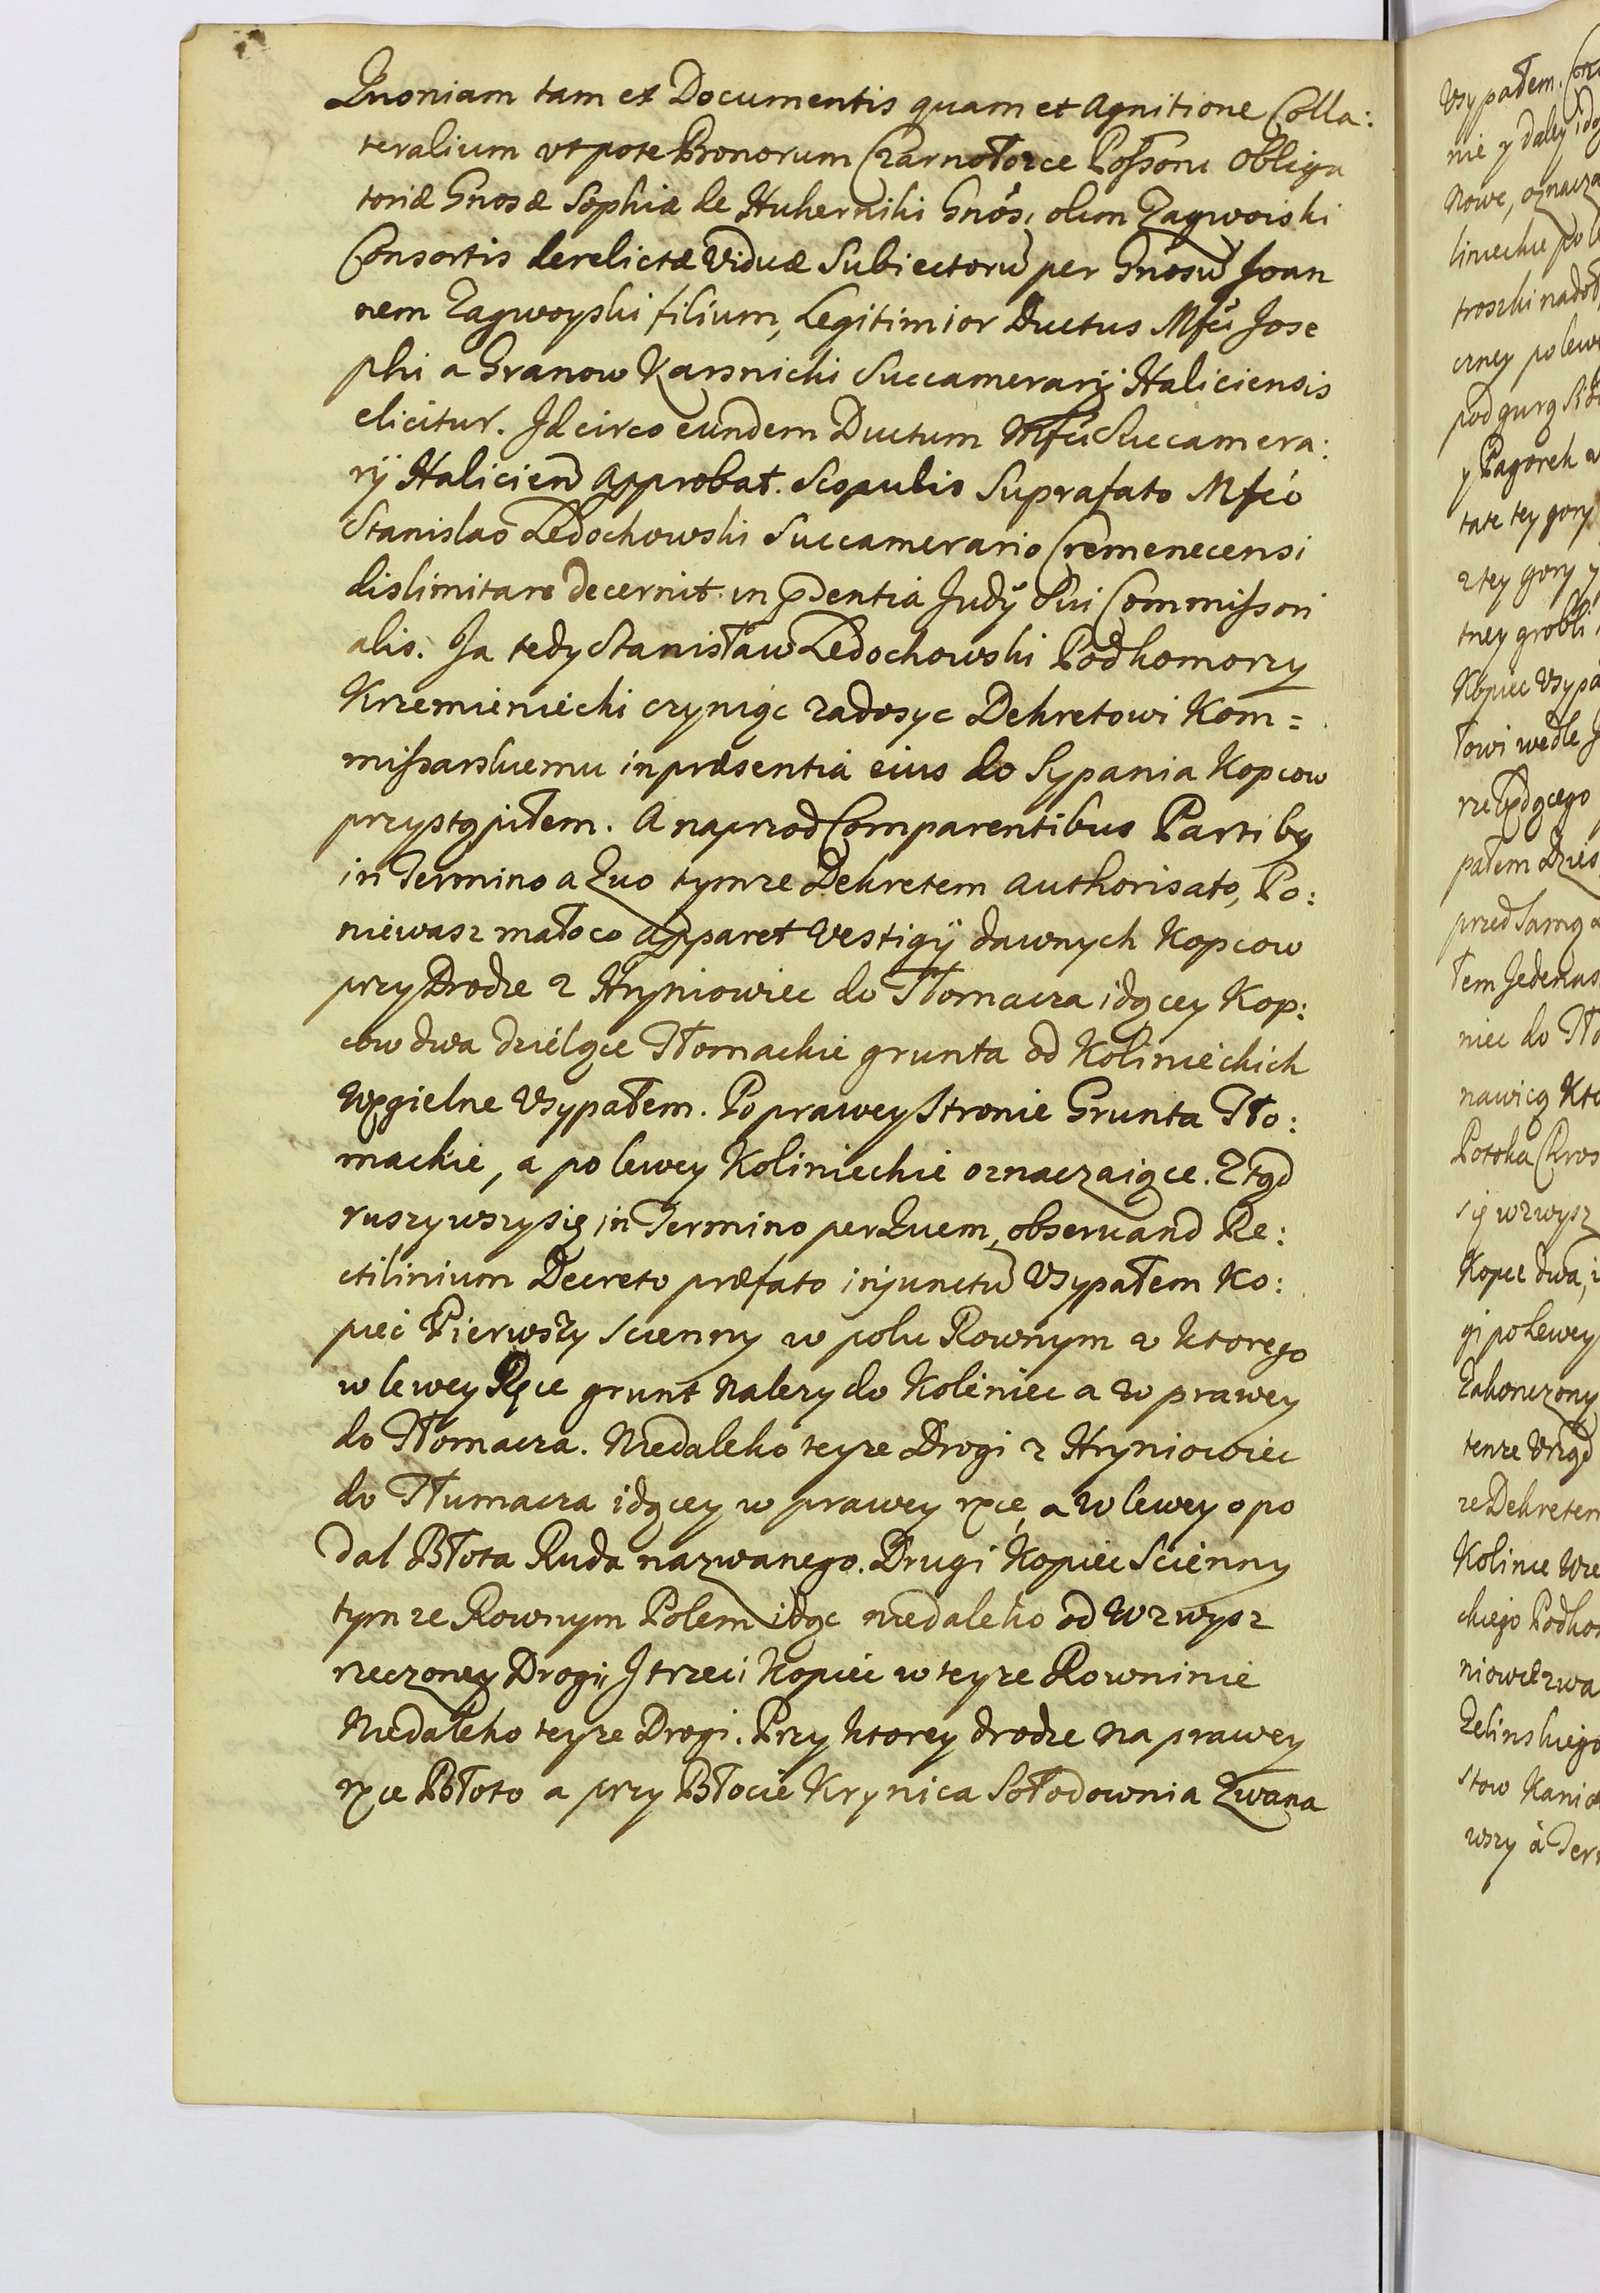 Quoniam tam et Documentis quam et Agnitione Colla:
teralium vtpote Bonorum Czarnołozce Possoru Obliga
toriæ Gnosæ Sophiæ de Kukernihi Gnosi olim Zagwoiski
Consortis derelictæ Viduæ Subiectorū per Gnosū Joan
nem Zagwoyski filium, Legitimior Ductus Mfci Jose
phi a Granow Karsnicki Succamerarij Haliciensis
elicitur. Idcirco eundem Ductum Mfci Succamera:
rij Halicien Approbat. Scopulis Suprafato Mfco
Stanislao Ledochowski Succamerario Cremenecensi
dislimitare decernit in pdentia Judij Sui Commissori
alis. Ja tedy Stanisław Ledochowski Podkomorzy
Krzemieniecki czyniąc zadosyc Dekretowi Kom=
missarskiemu in præsentia eius do Sypania Kopcow
przystąpiłem. A naprzod Comparentibus Partibq
in Termino a Quo tymze Dekretem Authorisato, Po:
niewasz mało co Apparet Vestigij dawnych Kopcow
przy Drodze z Hryniowiec do Tłomacza idącey Kop:
cow dwa dzielące Tłomackie grunta od Kolinieckich
Węgielne Vsypałem. Po prawey Stronie Grunta Tło:
mackie, a po lewey Kolinieckie oznaczaiące. Ztąd
ruszywszy się in Termino per Quem, obseruand Re:
ctilinium Decreto præfato injunctū Vsypałem Ko:
piec Pierwszy Scienny w polu Rownym z ktorego
w lewey Ręce grunt Nalezy do Koliniec a w prawey
do Tłomacza. Niedaleko teyze Drogi z Hryniowiec
do Tłumacza idącey w prawey ręce, a w lewey opo
dal Błota Ruda nazwanego. Drugi Kopiec Scienny
tymze Rownym Polem idąc niedaleko od Wzwysz
rzeczoney Drogi, J trzeci Kopiec w teyze Rowninie
Niedaleko teyze Drogi. Przy ktorey drodze Na prawey
ręce Błoto a przy Błocie Krynica Sołodownia Zwana